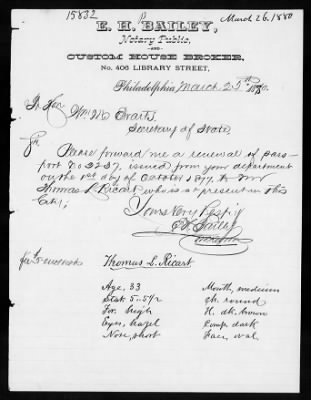 15832
March 26. 1880
E. H. P BAILEY,
Notary Public,
AND
CUSTOM HOUSE BROKER,
No. 406 LIBRARY STREET,
Philadelphia March 25th 1880.
Wm M Evarts,
Secretary of State
Sir
Please forward me a renewal of pass-
port No 2237, issued from your department
on the 1st day of October 1877, to Mr
Thomas L Ricart who is at present in this
City;
Yours Very Resp'y
E H Bailey
Thomas L. Ricart
Age, 33
Stat. 5-5 1/2
For. high
Eyes, hazel
Nose, short
Mouth, medium
Ch. round
H. dk. brown
Comp. dark
Face, oval